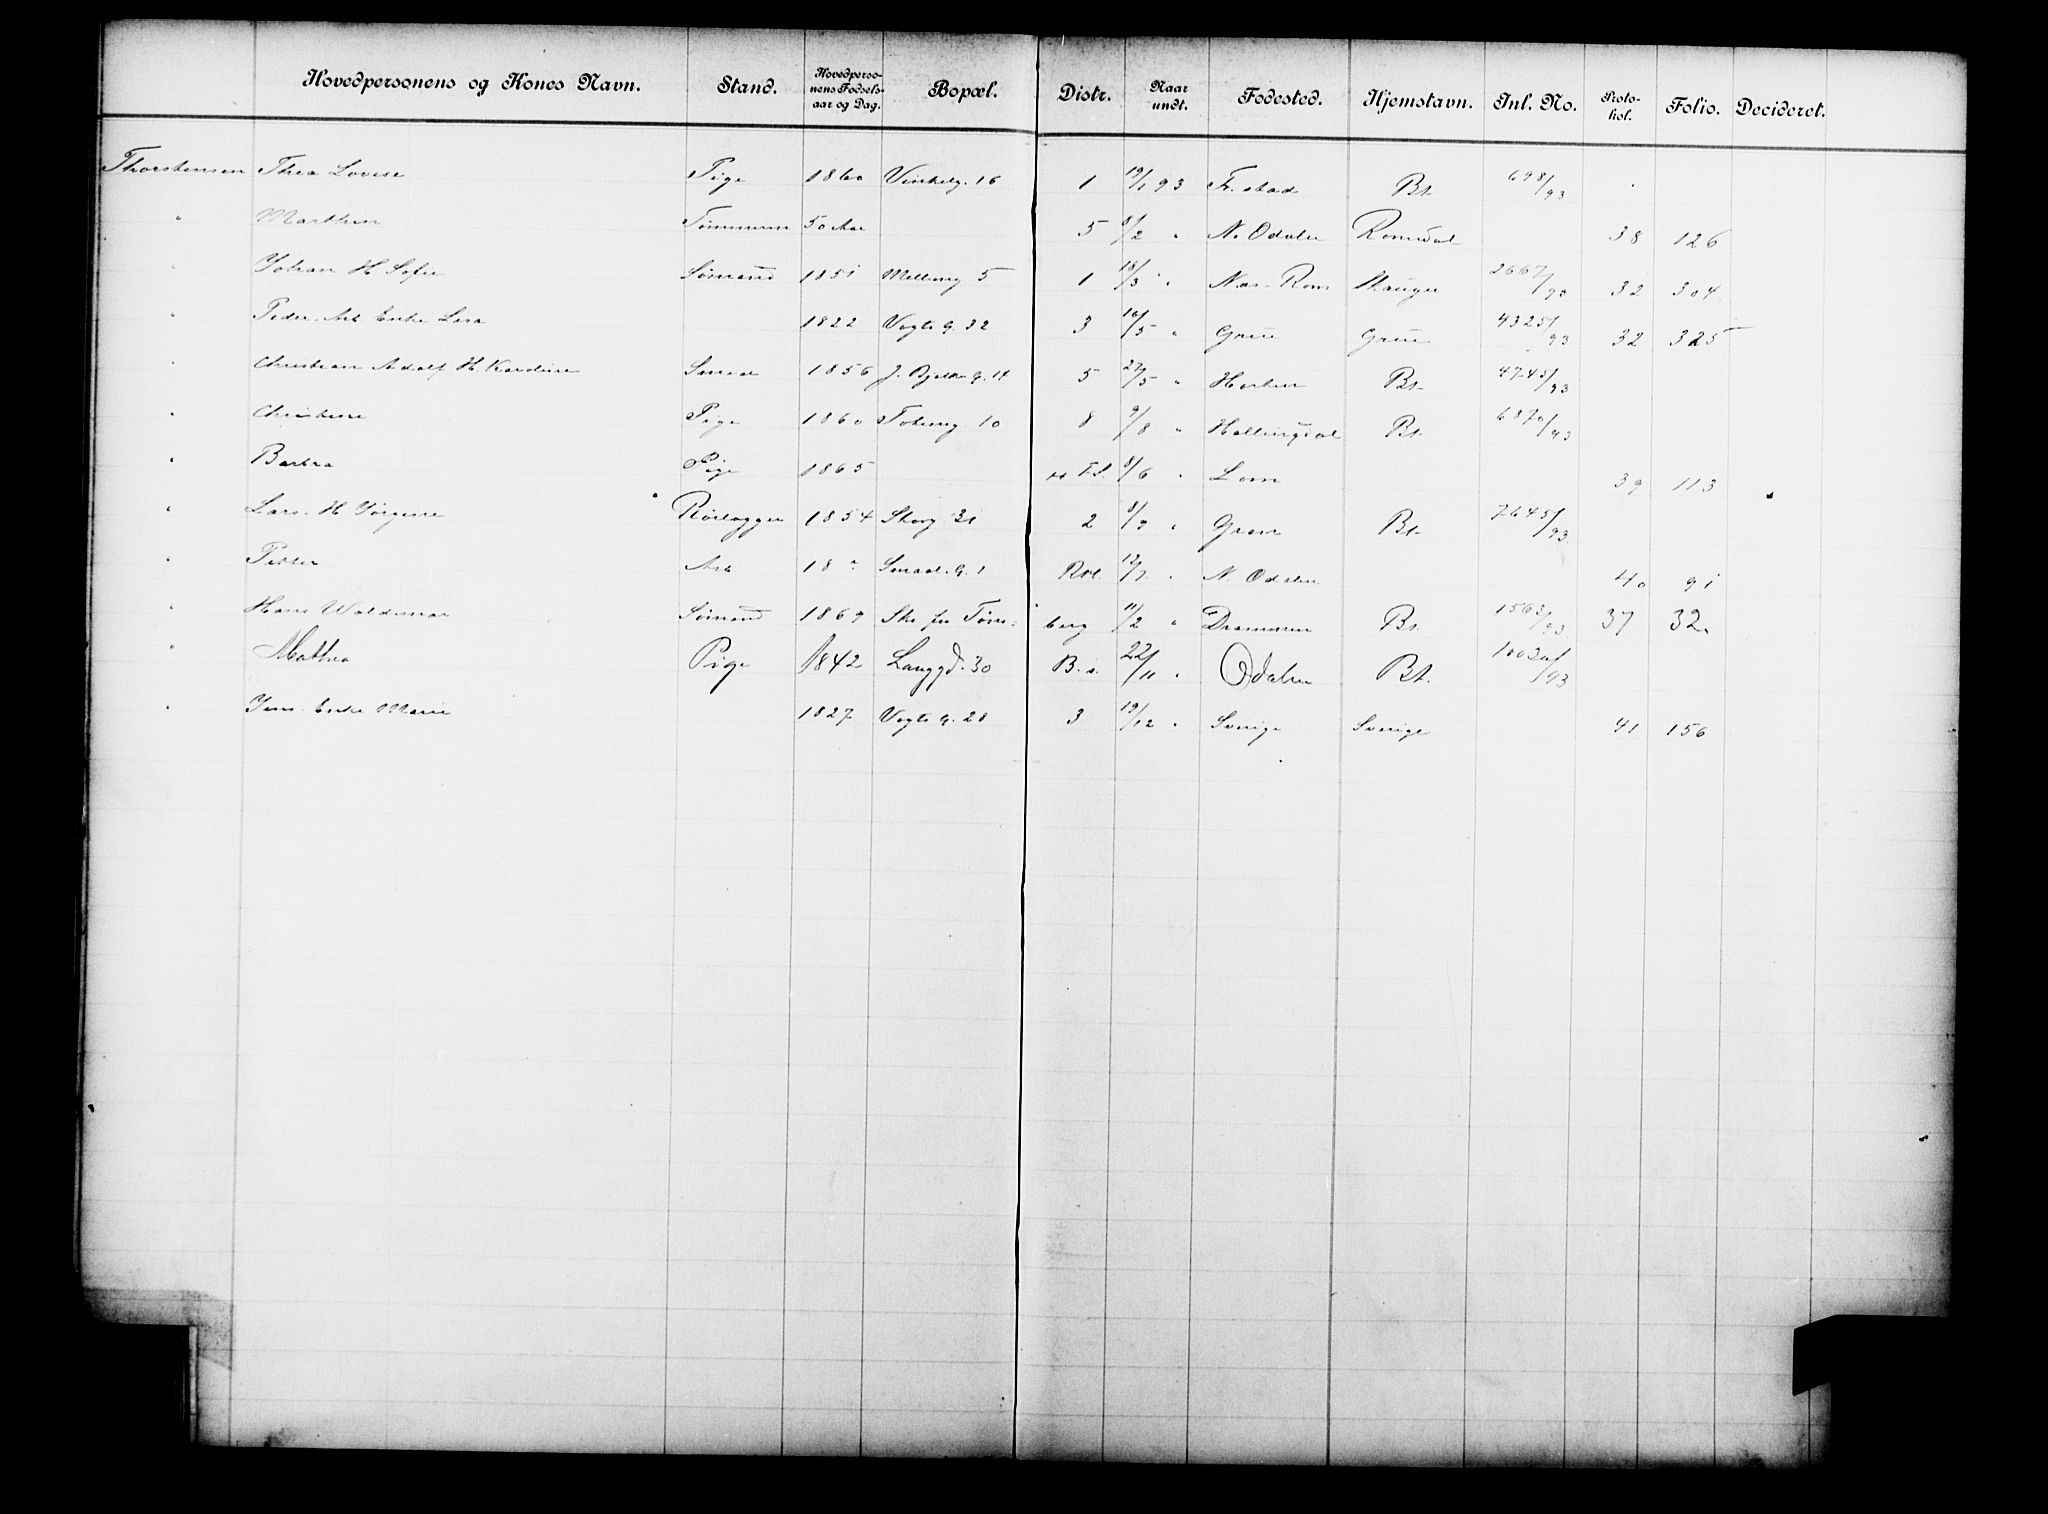 Hovedpersonens og Kones Navn. Stand. Hovedpersonens Fødselsaar og Dag. Bopæl. Distr. Naar undt. Fødested. Hjemstavn. Inl. No. Protokol. Folio. Decideret.
Thorstensen Thea Lovise Pige 1860 Vinkelg. 16 1 19/1 93 Fr.stad Bt. 698/93
" Marthin Tømmerm 50 Aar 5 8/2 " N. Odalen Romedal 38 126
" Johan H Sofie Sømand 1851 Mellemg 5 1 18/3 " Næs. Rom 2667/93 32 304
" Peder. Arb Enke Lisa 1822 Vogts g. 32 3 16/5 " Grue Grue 4325/93 32 325
" Christian Adolf H. Karoline 1856 J. Bjelkes g. 14 5 27/5 " Horten Bt. 4745/93
" Christine Pige 1860 Toteng. 10 8 9/8 " Hallingdal Bt. 6870/93
" Barbra Pige 1865 8/6 " Lom 39 113
" Lars. H Jørgine Rørlægger 1854 Storg 31 2 8/9 " Gran Bt. 7645/93
" Petter Arb 18 Smaal. g. 1 12/7 " N. Odalen 40 91
" Hans Waldemar Sømand 1869 Sk. fra Tønsberg 11/2 " Drammen Bt. 1563/93 37 32
" Mathea Pige 1842 Langgd. 30 B. s. 22/11 " Odalen Bt. 10030/93
" Jens. Enke Marie 1827 Vogts g. 28 3 19/12 " Sverige Sverige 41 156